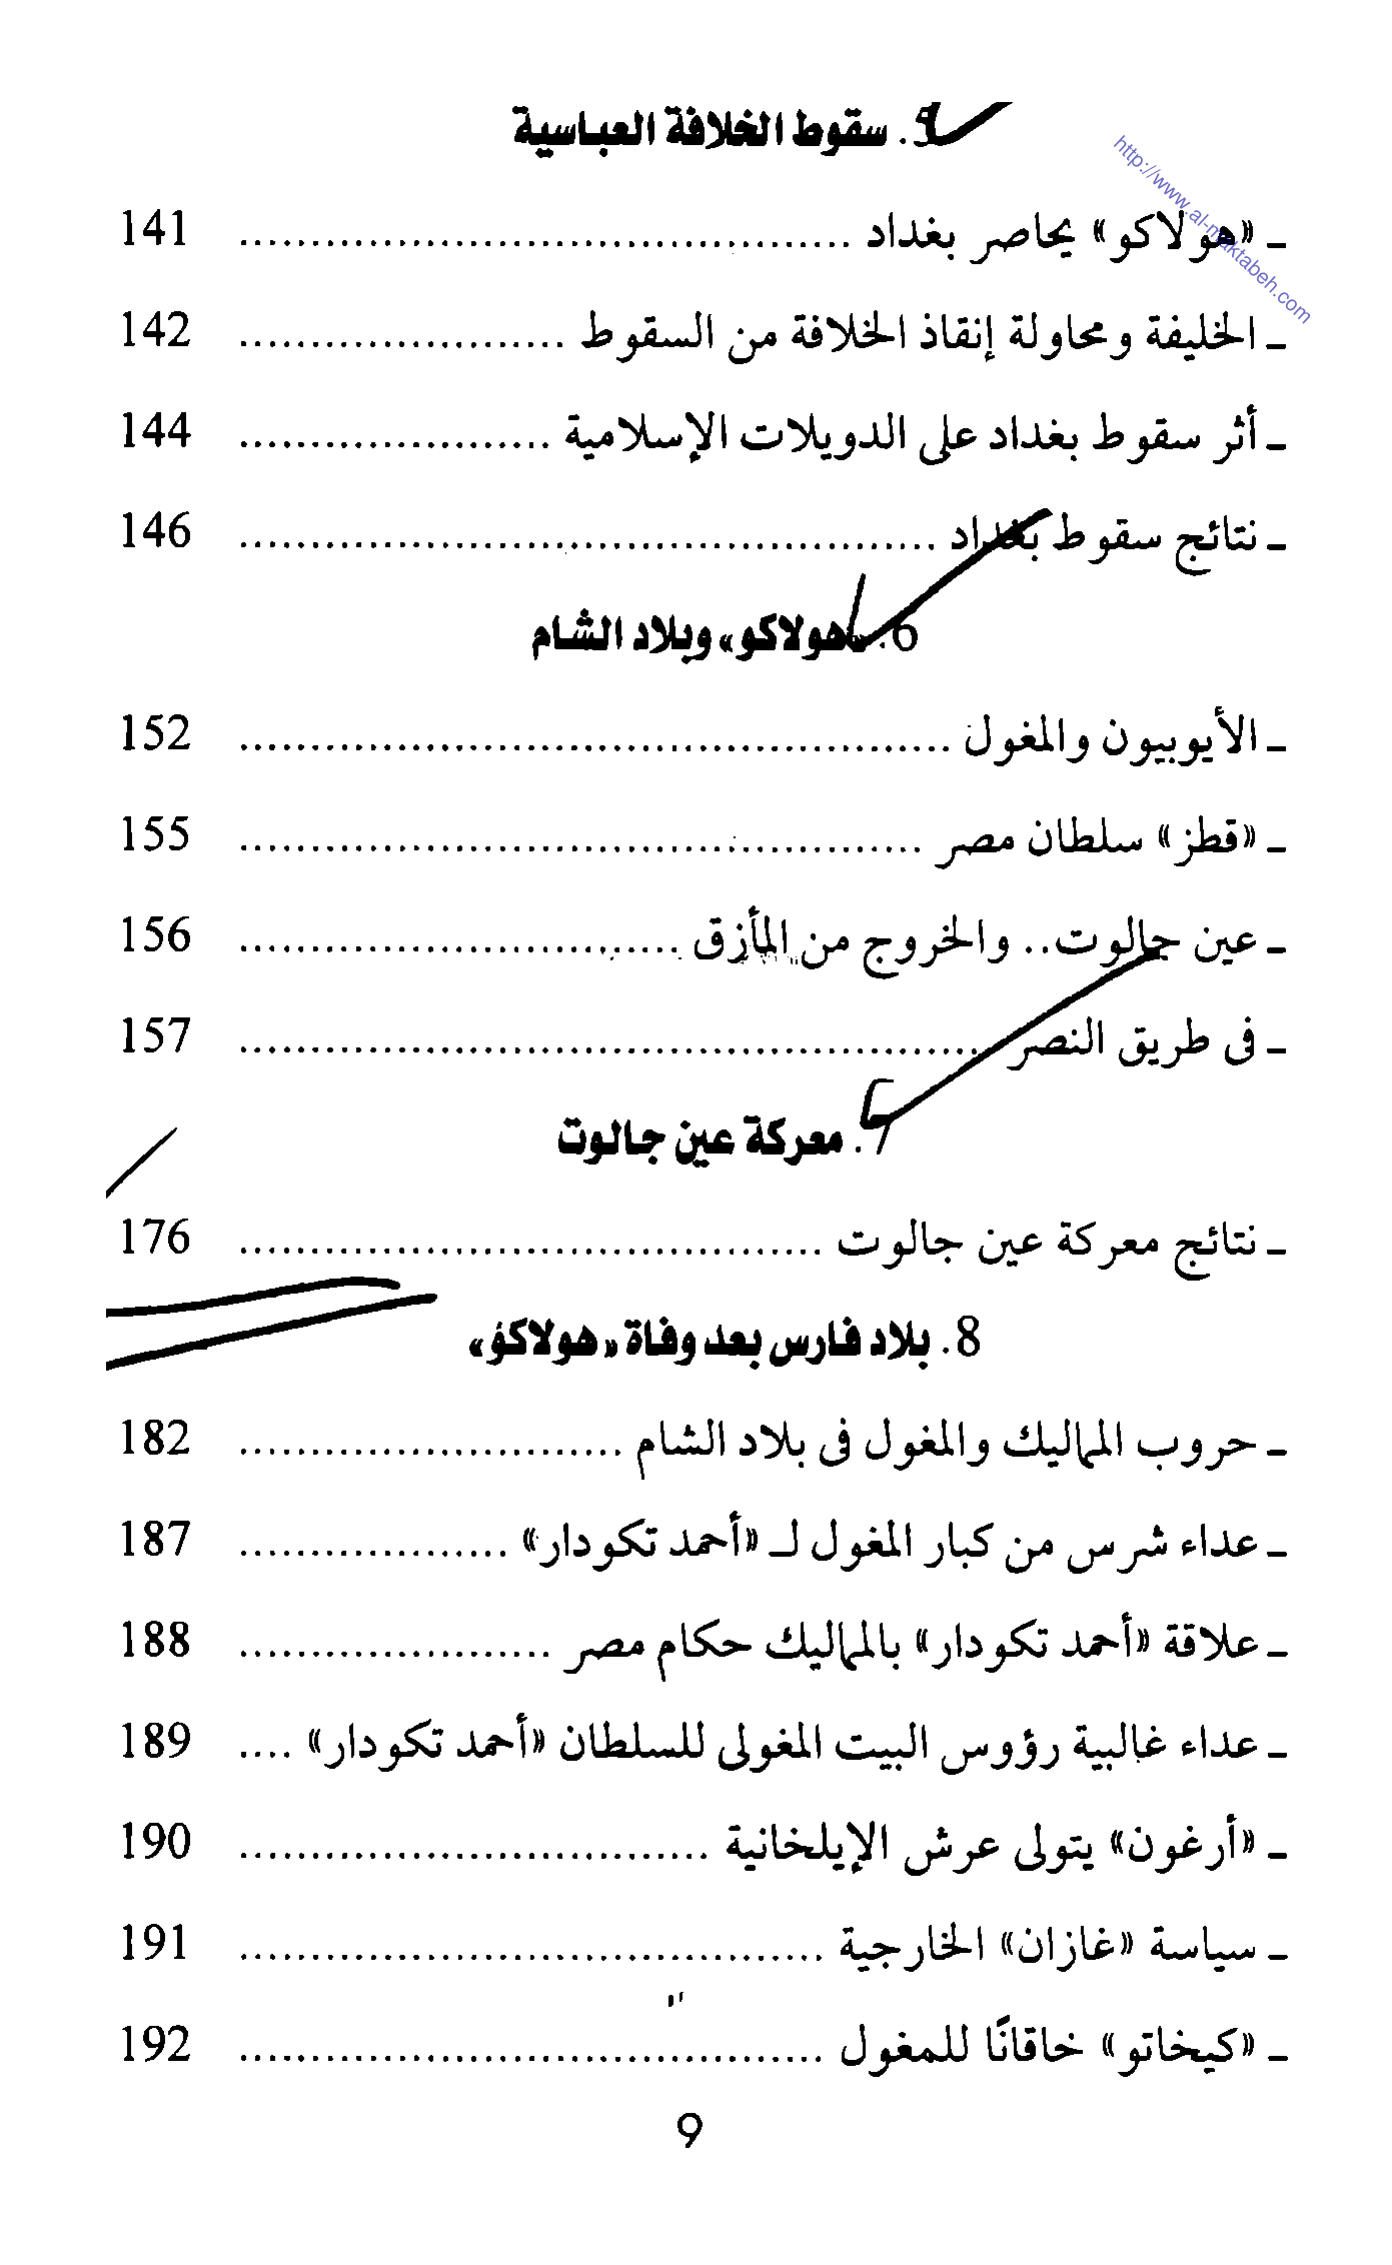 5. سقوط الخلافة العباسية
http://www.al-maktabeh.com
ـ «هولاكو» يحاصر بغداد ........................................... 141
ـ الخليفة ومحاولة إنقاذ الخلافة من السقوط ....................... 142
ـ أثر سقوط بغداد على الدويلات الإسلامية ...................... 144
ـ نتائج سقوط بغداد ................................................. 146
6. «هولاكو» وبلاد الشام
ـ الأيوبيون والمغول .................................................. 152
ـ «قطز» سلطان مصر ................................................ 155
ـ عين جالوت.. والخروج من المأزق ............................... 156
ـ فى طريق النصر .................................................... 157
7. معركة عين جالوت
ـ نتائج معركة عين جالوت ......................................... 176
8. بلاد فارس بعد وفاة «هولاكؤ»
ـ حروب المماليك والمغول فى بلاد الشام ........................... 182
ـ عداء شرس من كبار المغول لـ «أحمد تكودار» ................... 187
ـ علاقة «أحمد تكودار» بالمماليك حكام مصر ...................... 188
ـ عداء غالبية رؤوس البيت المغولى للسلطان «أحمد تكودار» .... 189
ـ «أرغون» يتولى عرش الإيلخانية ................................. 190
ـ سياسة «غازان» الخارجية ......................................... 191
ـ «كيخاتو» خاقانًا للمغول ......................................... 192
9